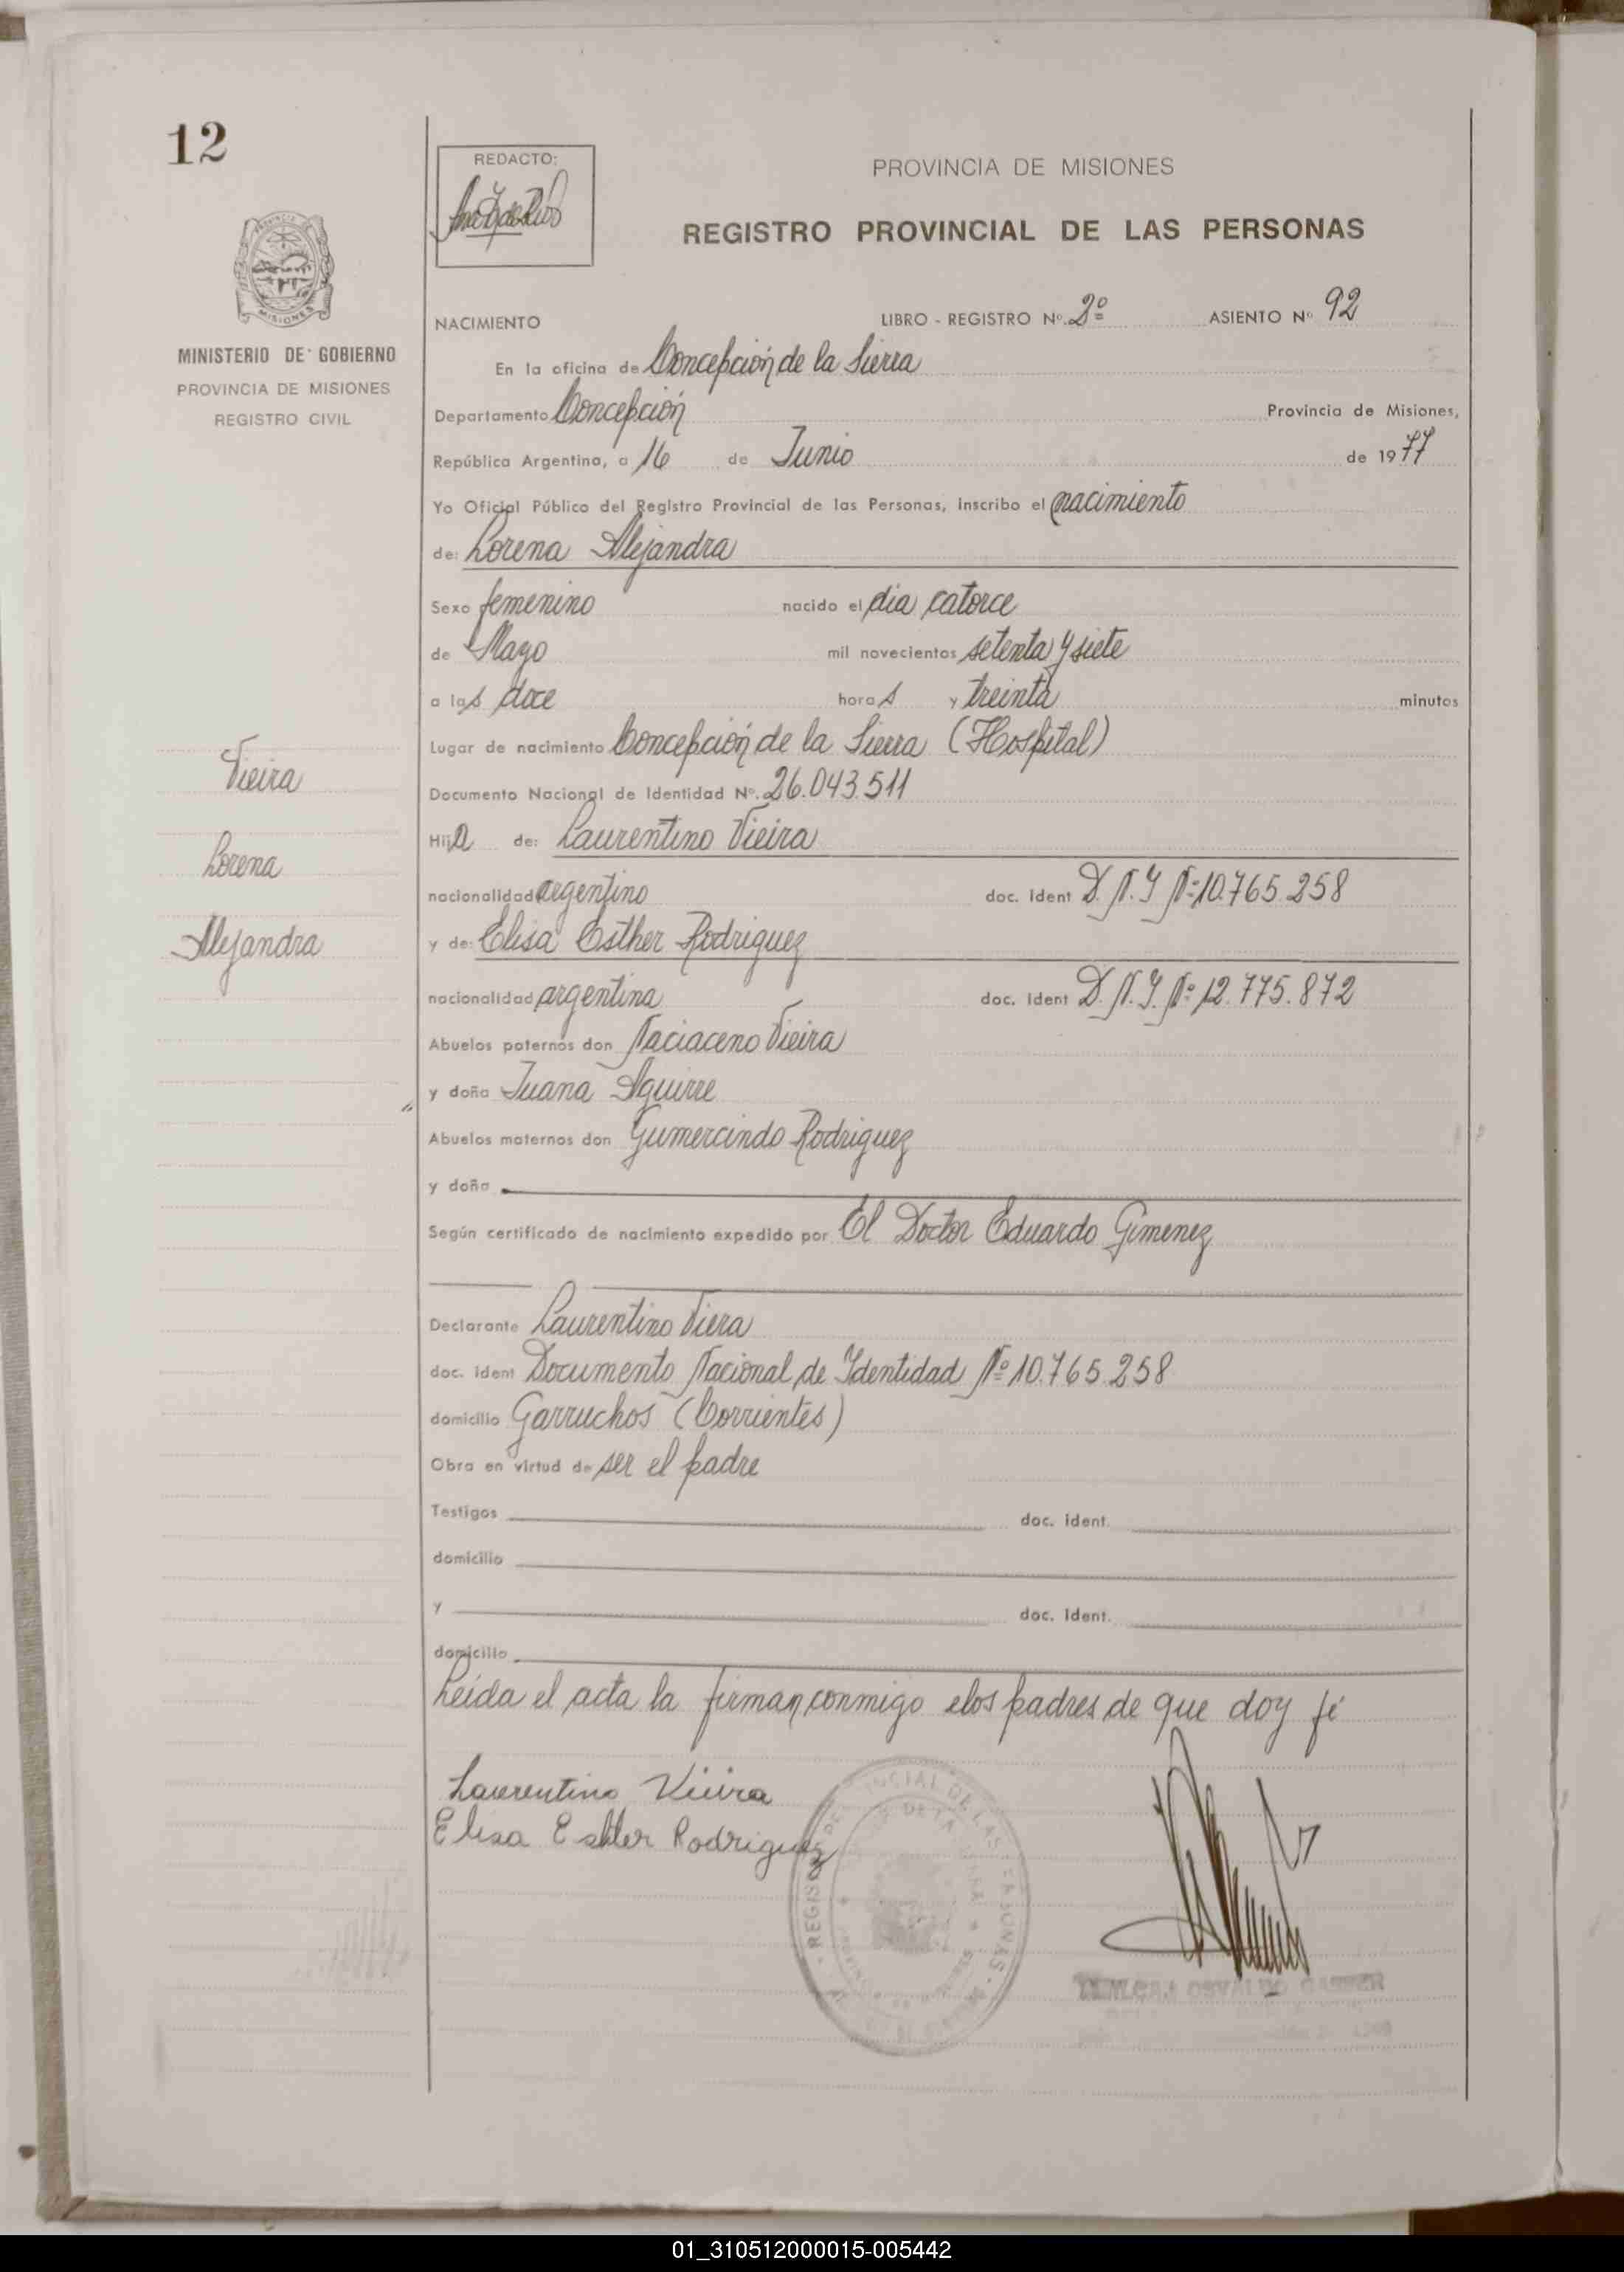 12
REDACTO:
PROVINCIA DE MISIONES
REGISTRO PROVINCIAL DE LAS PERSONAS
MISIONES
MINISTERIO DE GOBIERNO
PROVINCIA DE MISIONES
REGISTRO CIVIL
NACIMIENTO LIBRO - REGISTRO Nº 2º ASIENTO Nº 92
En la oficina de Concepción de la Sierra
Departamento Concepción Provincia de Misiones,
República Argentina, a 16 de Junio de 1977
Yo Oficial Público del Registro Provincial de las Personas, inscribo el nacimiento
de: Lorena Alejandra
Sexo femenino nacido el día catorce
de Mayo mil novecientos setenta y siete
a las doce horas y treinta minutos
Lugar de nacimiento Concepción de la Sierra (Hospital)
Documento Nacional de Identidad Nº. 26.043.511
Hija de: Laurentino Vieira
nacionalidad argentino doc. Ident D.N.I Nº 10.765.258
y de: Elisa Esther Rodriguez
nacionalidad argentina doc. Ident D.N.I. Nº 12.775.872
Abuelos paternos don Naciaceno Vieira
y doña Juana Aguirre
Abuelos maternos don Gumercindo Rodriguez
y doña
Según certificado de nacimiento expedido por El Doctor Eduardo Gimenez
Declarante Laurentino Viera
doc. Ident Documento Nacional de Identidad Nº 10.765.258
domicilio Garruchos (Corrientes)
Obra en virtud de ser el padre
Testigos doc. ident.
domicilio
y doc. Ident.
domicilio
Leída el acta la firman conmigo elos padres de que doy fé
Vieira
Lorena
Alejandra
Laurentino Vieira
Elisa Esther Rodriguez
OSVALDO
01_310512000015-005442